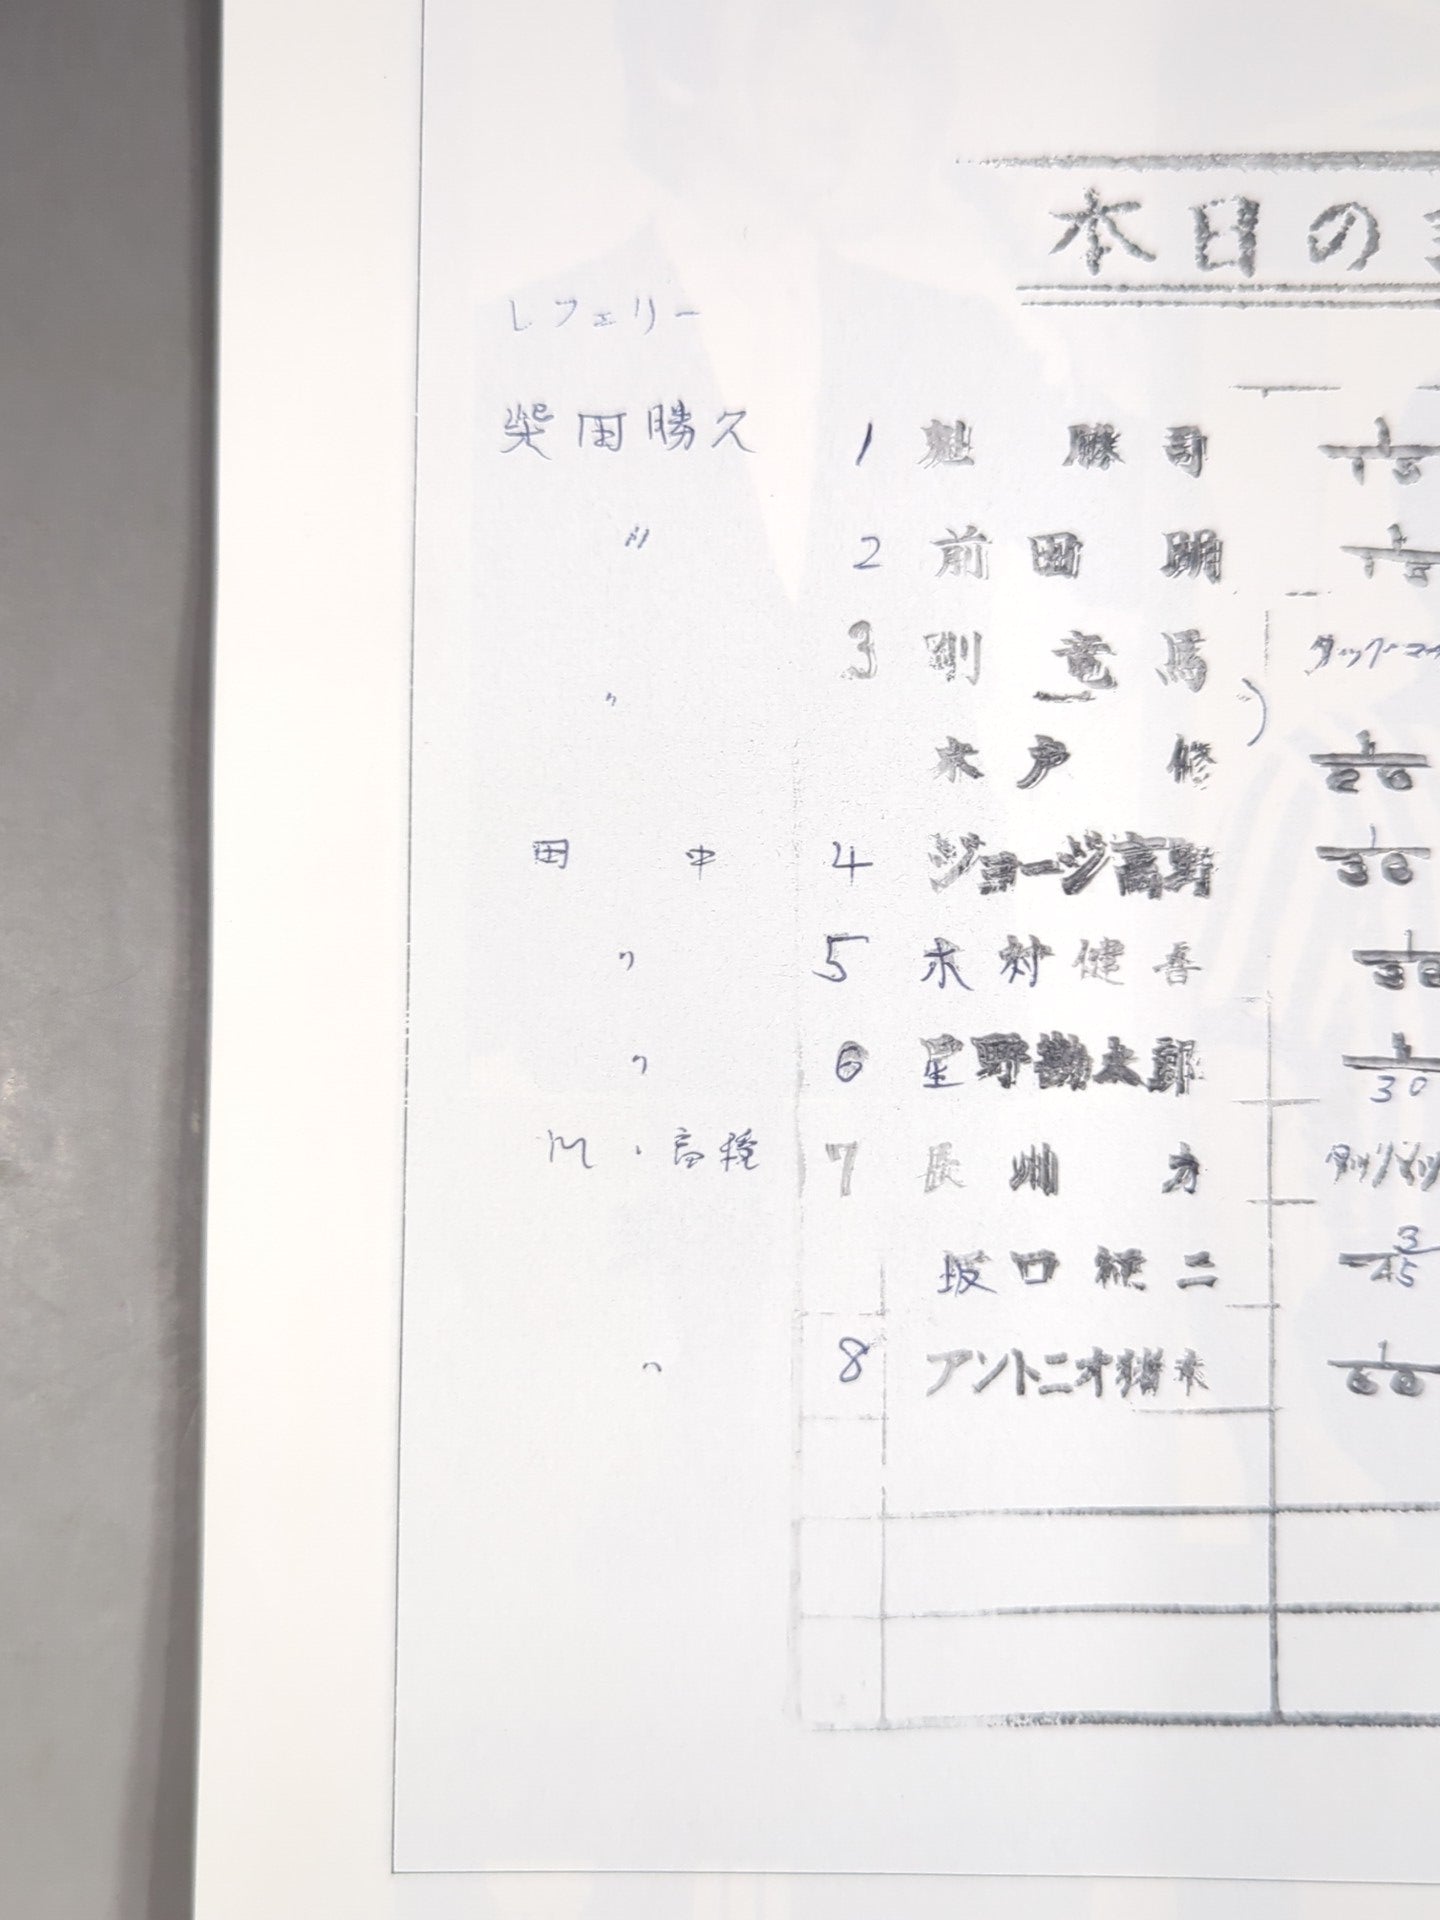 本日の
レフェリー
柴田勝久 1 魁 勝司 1/15
〃 2 前田 明 1/15
3 剛 竜馬 タッグマッ
〃
木戸 修 1/20
田中 4 ジョージ高野 1/30
〃 5 木村健吾 1/30
〃 6 星野勘太郎 1/30
M・高橋 7 長州 力
坂口征二 3/45
〃 8 アントニオ猪木 1/60